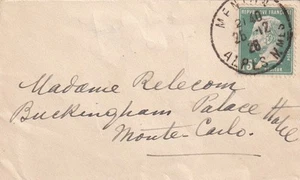 MENTON
20
26 - 12
26
ALPES MMES
REPUBLIQUE FRANCAISE
Madame Relecom
Buckingham Palace Hotel
Monte-Carlo.